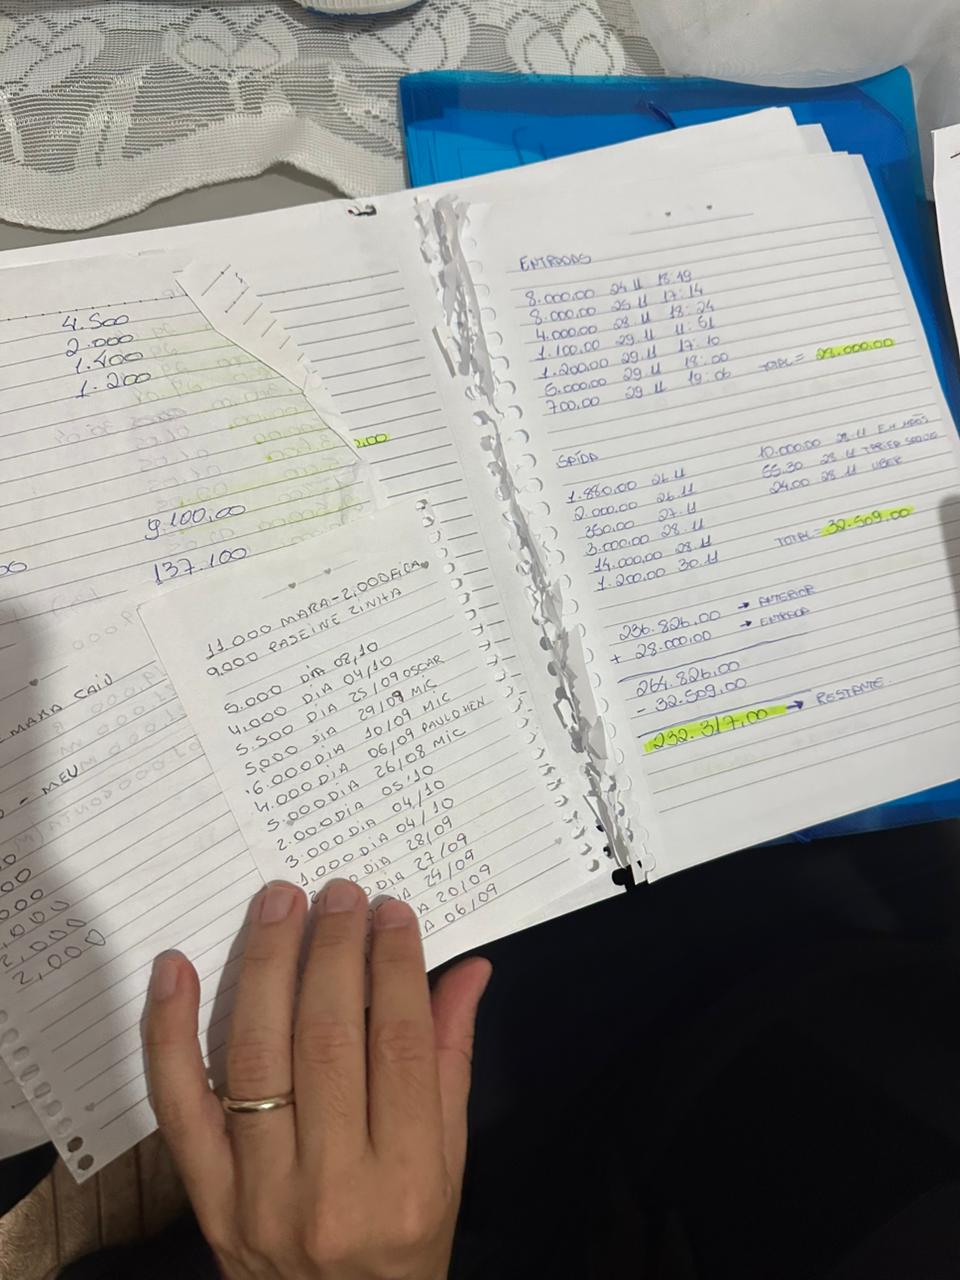 4.500
2.000
1.400
1.200
9.100,00
137.100
MAXA CAIU
- MEU
2,000
2,000
11.000 MARA - 2,000 FICA
9,000 PASEINE ZINHA
5.000 DIA 08,10
4.000 DIA 04/10
5.500 DIA 25/09 OSCAR
5,000 DIA 29/09 MIC
6.000 DIA 10/09 MIC
4.000 DIA 06/09 PAULO HEN
5.000 DIA 26/08 MIC
2.000 DIA 05,10
3.000 DIA 04/10
1,000 DIA 04/10
DIA 28/09
DIA 27/09
IA 24/09
A 20/09
A 06/09
ENTRADAS
8.000,00 24.11 18:19
8.000,00 25.11 17:14
4.000,00 28.11 18:24
1.100,00 29.11 11:51
1.200,00 29.11 17:10
5.000,00 29.11 18:00
700,00 29.11 19:06
TOTAL =
SAÍDA
1.880,00 26.11
2.000,00 26.11
350,00 27.11
3.000,00 28.11
14.000,00 28.11
1.200,00 30.11
10.000,00 28.11 EM MÃOS
55,30 28.11
24,00 28.11 UBER
TOTAL = 32.509,00
236.826,00 → ANTERIOR
+ 28.000,00 → ENTRADA
264.826,00
- 32.509,00
232.317,00 → RESTANTE